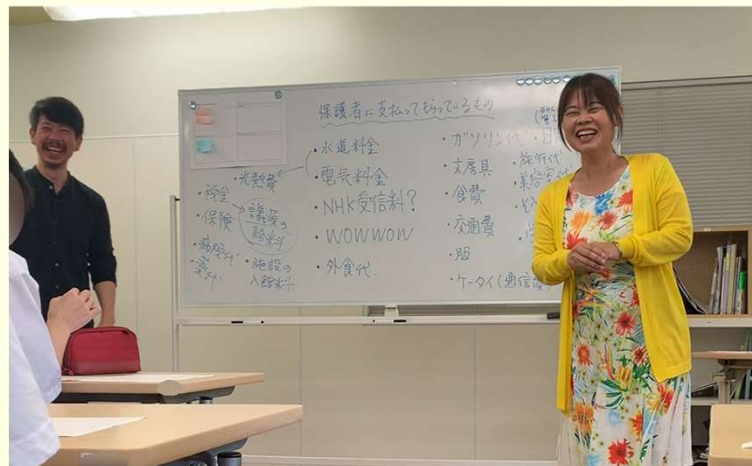 保護者に支払ってもらっているもの
・光熱費
・税金
・保険
・病院代
・薬代
議員の
給料
・施設の
入館料
・水道料金
・電気料金
・NHK受信料？
・WOWWOW
・外食代
・ガソリン代
・文房具
・食費
・交通費
・服
・ケータイ(通信費
・旅行代
・美容室代